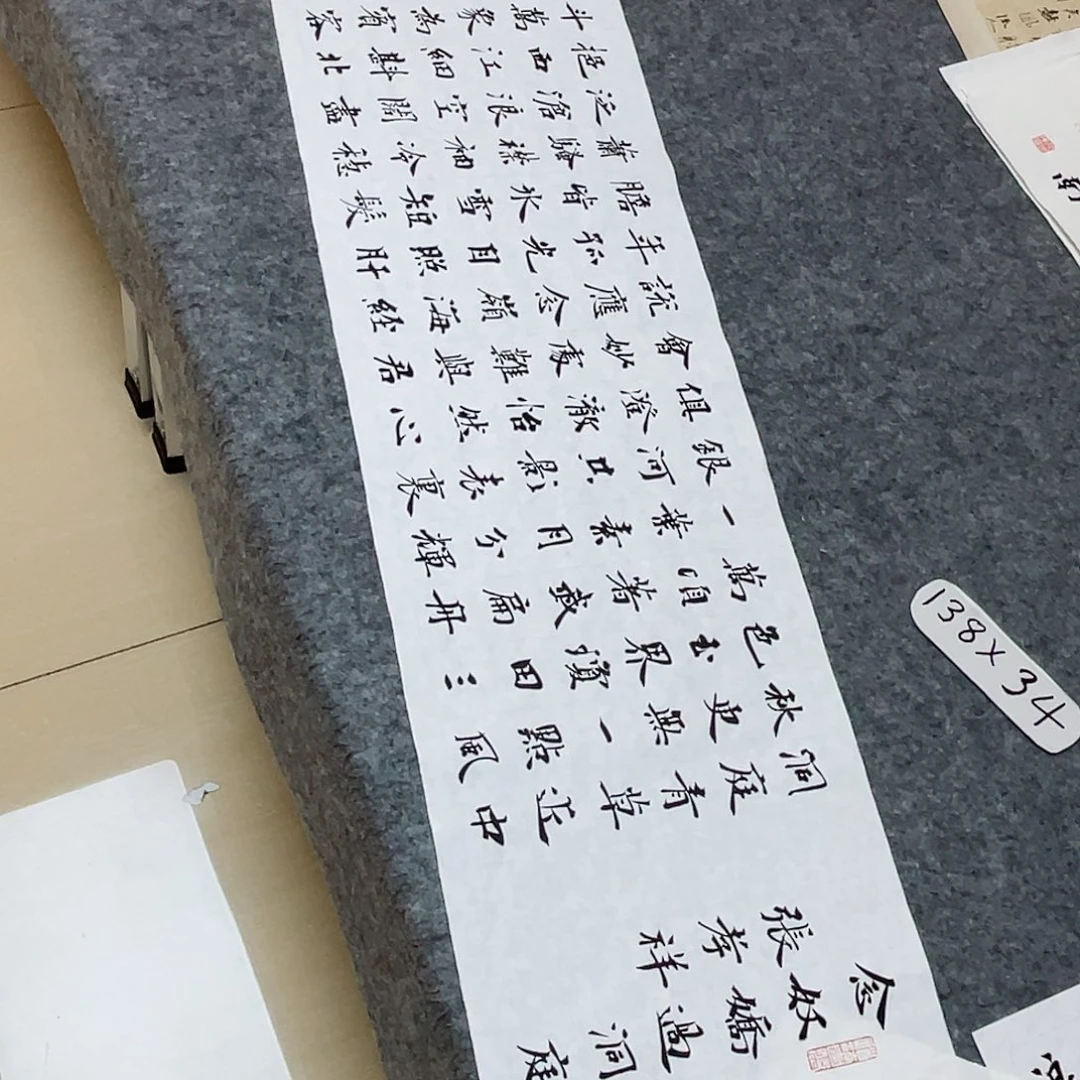 念奴嬌過洞庭
張孝祥
洞庭青草近中
秋更無一點風
色玉界瓊田三
萬頃著我扁舟
一葉素月分輝
銀河共影表裏
俱澄澈怡然心
會妙處難與君
說應念嶺海經
年孤光自照肝
膽皆冰雪短髮
蕭騷襟袖冷穩
泛滄浪空闊盡
挹西江細斟北
斗萬象為賓客
138×34